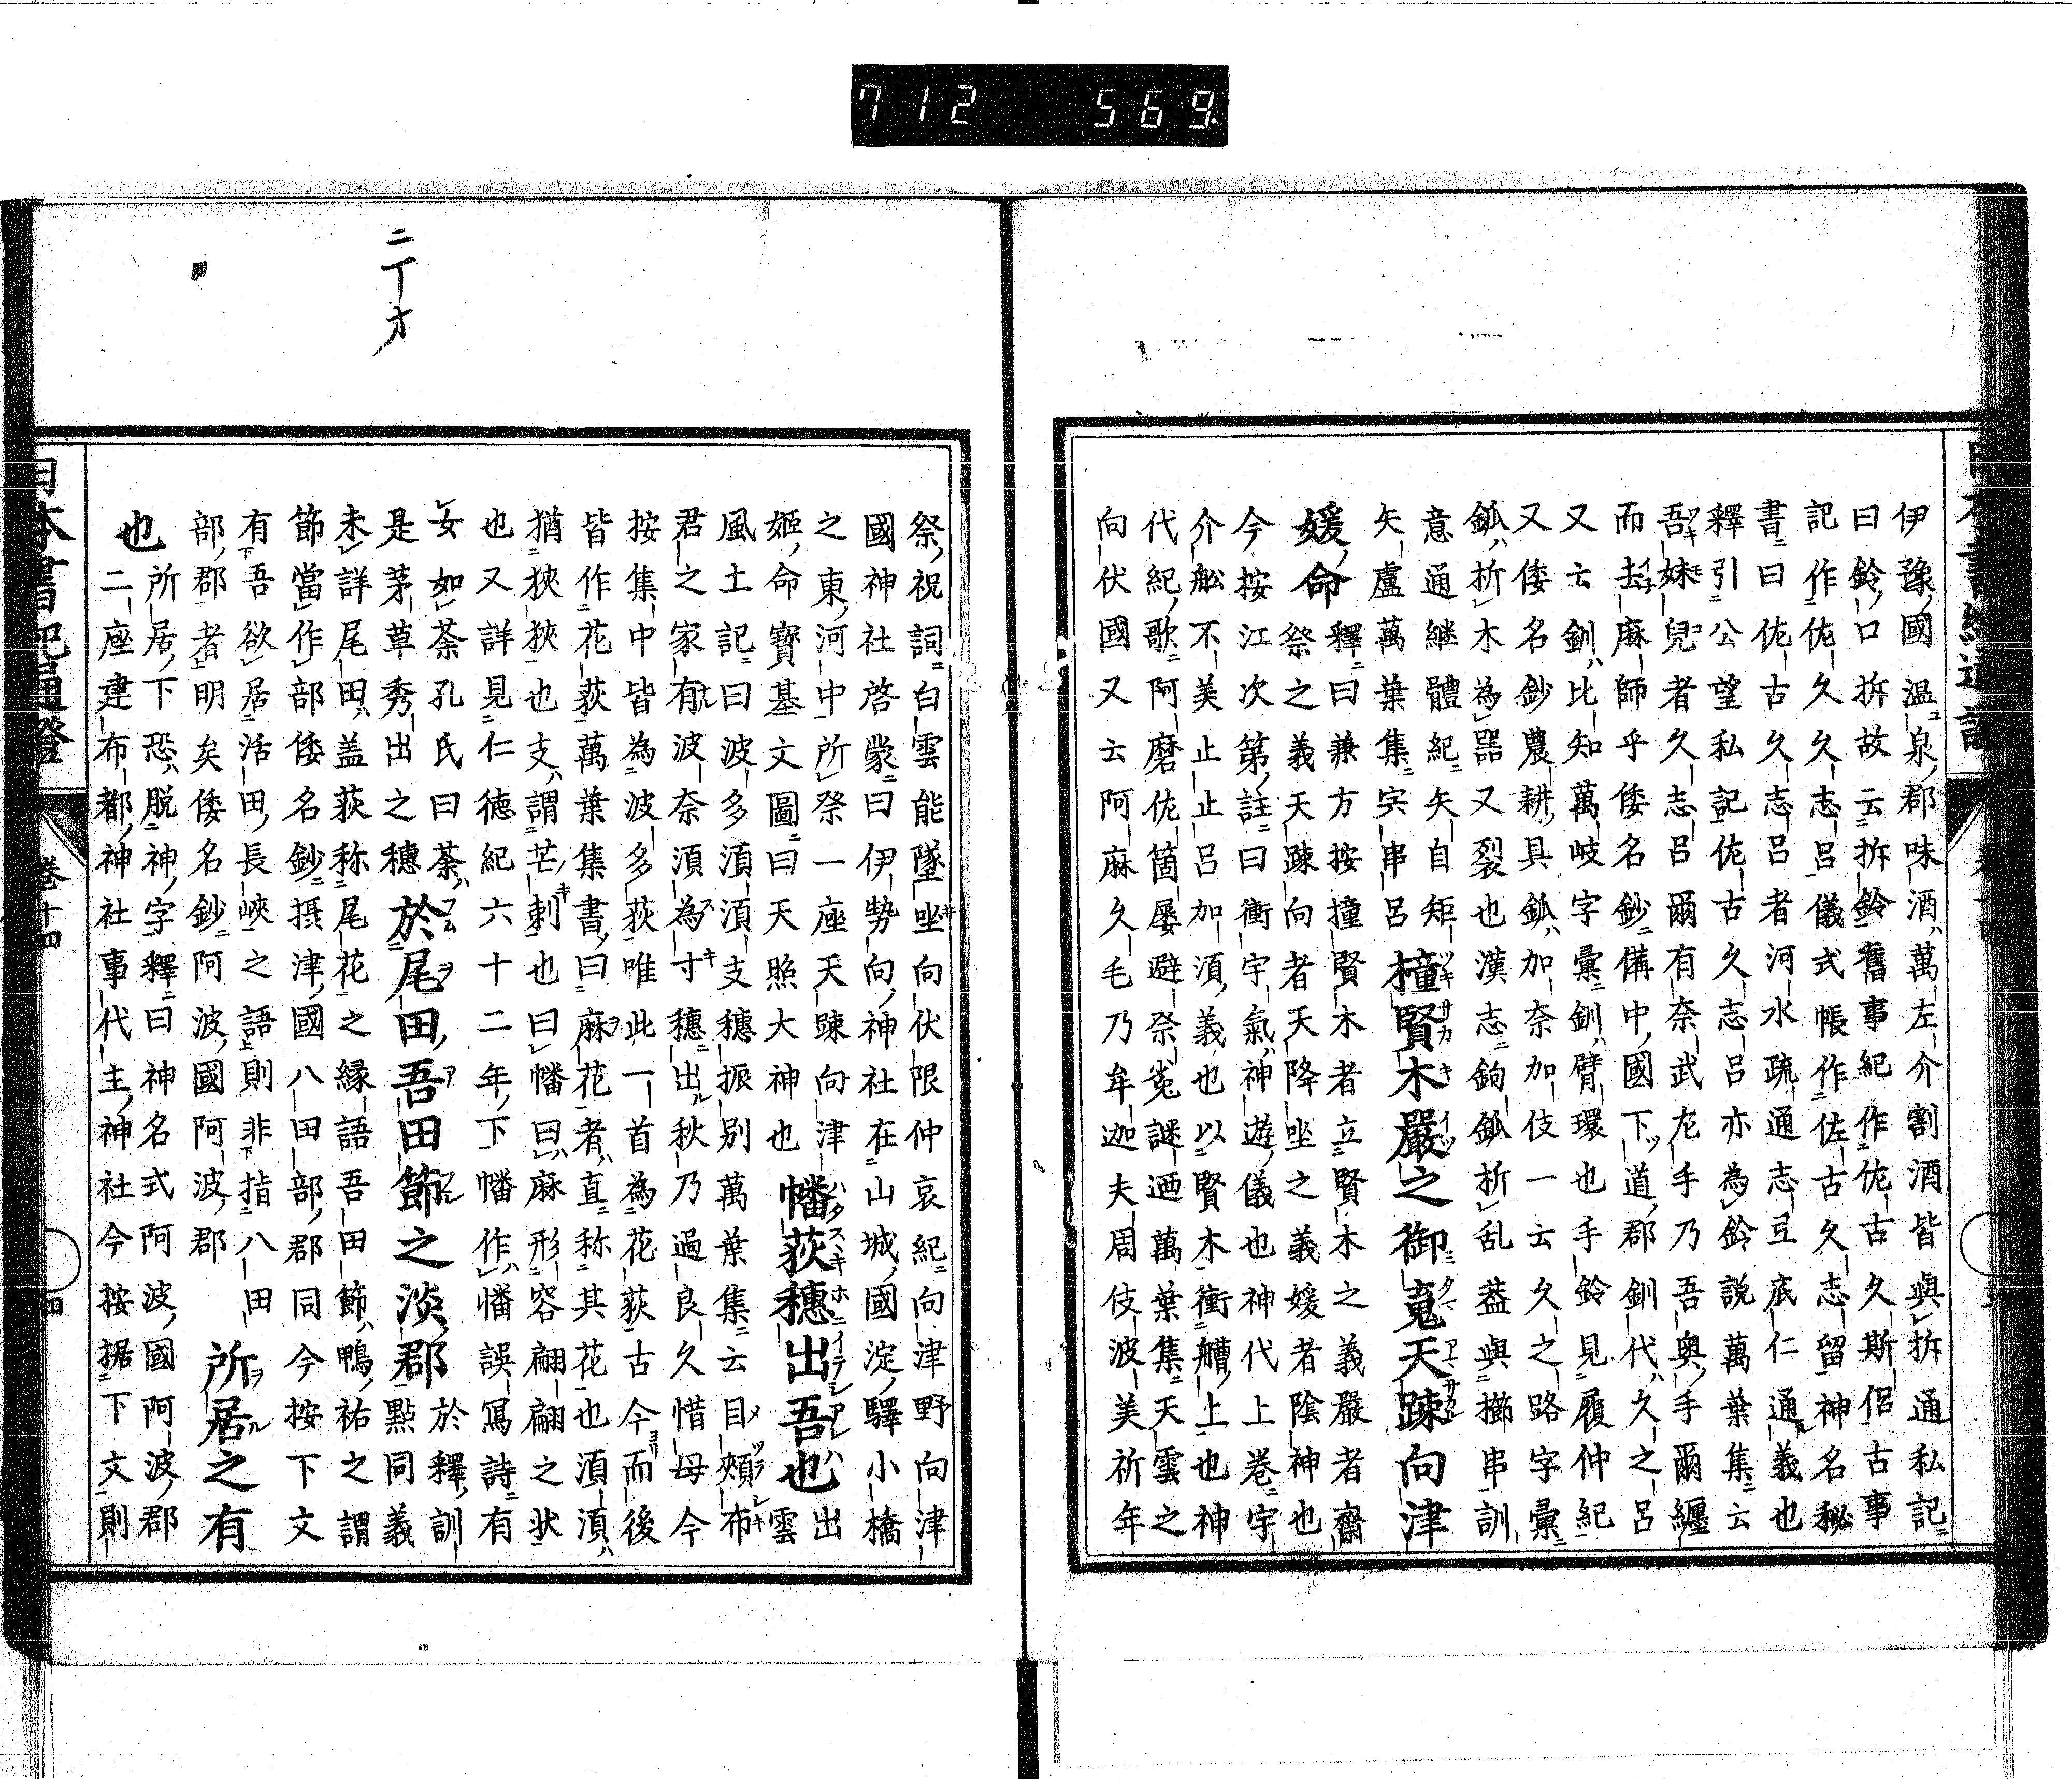 712 569
伊豫國温泉郡味酒萬左介割酒皆與拆通私記
曰鈴口拆故云拆鈴舊事紀作佐古久斯侶古事
記作佐久久志呂儀式帳作佐古久志留神名秘
書曰佐古久志呂者河水疏通志㠪底仁通義也
釋引公望私記佐古久志呂亦為鈴說萬葉集云
吾妹兒者久志呂爾有奈武左手乃吾奥手爾纏
而去麻師乎倭名鈔備中國下道郡釧代久之呂
又云釧比知萬岐字彙釧臂環也手鈴見履仲紀
又倭名鈔農耕具鈲加奈加伎一云久之路字彙
鈲折木為器又裂也漢志鉤鈲折乱葢與擳串訓
意通継體紀矢自矩
矢盧萬葉集宍串呂
撞賢木嚴之御䰟天踈向津
媛命
釋曰兼方按撞賢木者立賢木之義嚴者齋
祭之義天踈向者天降坐之義媛者陰神也
今按江次第註曰衝宇氣神遊儀也神代上卷宇
介舩不美止止呂加湏義也以賢木衝艚上也神
代紀歌阿磨佐箇屡避祭菟謎迺萬葉集天雲之
向伏國又云阿麻久毛乃牟迦夫周伎波美祈年
祭祝詞白雲能墜坐向伏限仲哀紀向津野向津
國神社啓蒙曰伊勢向神社在山城國淀驛小橋
之東河中所祭一座天踈向津
姬命寳基文圖曰天照大神也
幡荻穗出吾也
出雲
風土記曰波多湏湏支穗振別萬葉集云目頰布
君之家有波奈湏為寸穗出秋乃過良久惜母今
按集中皆為波多荻唯此一首為花荻古今而後
皆作花荻萬葉集書曰麻花者直称其花也湏湏
猶狹狹也支謂芒刺也曰幡曰麻形容翩翩之狀
也又詳見仁徳紀六十二年下幡作幡誤冩詩有
女如荼孔氏曰荼
是茅草秀出之穗
於尾田吾田節之淡郡
於釋訓
點同義
未詳尾田盖荻称尾花之縁語吾田節鴨祐之謂
節當作部倭名鈔摂津國八田部郡同今按下文
有吾欲居活田長峽之語則非指八田
部郡者明矣倭名鈔阿波國阿波郡
所居之有
也
所居下恐脱神字釋曰神名式阿波國阿波郡
二座建布都神社事代主神社今按据下文則
日本書紀通證
卷十四
四
二丁オ